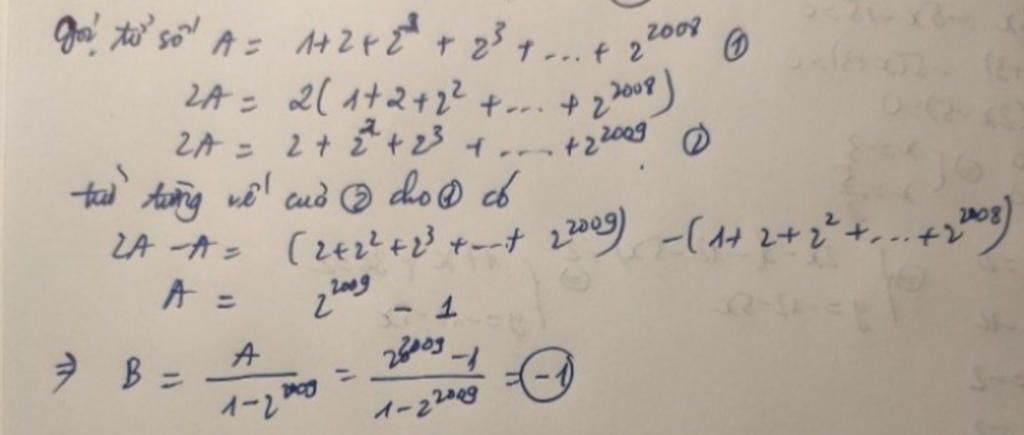 Gọi tử số A = 1+2+2² + 2³ + ... + 2²⁰⁰⁸ ①
2A = 2(1+2+2² +...+ 2²⁰⁰⁸)
2A = 2+2²+2³ + .... +2²⁰⁰⁹ ②
trừ từng vế của ② cho ① có
2A -A = (2+2²+2³ +...+ 2²⁰⁰⁹) -(1+2+2²+...+2²⁰⁰⁸)
A = 2²⁰⁰⁹ - 1
⇒ B = A/(1-2²⁰⁰⁹) = (2²⁰⁰⁹-1)/(1-2²⁰⁰⁹) = -1